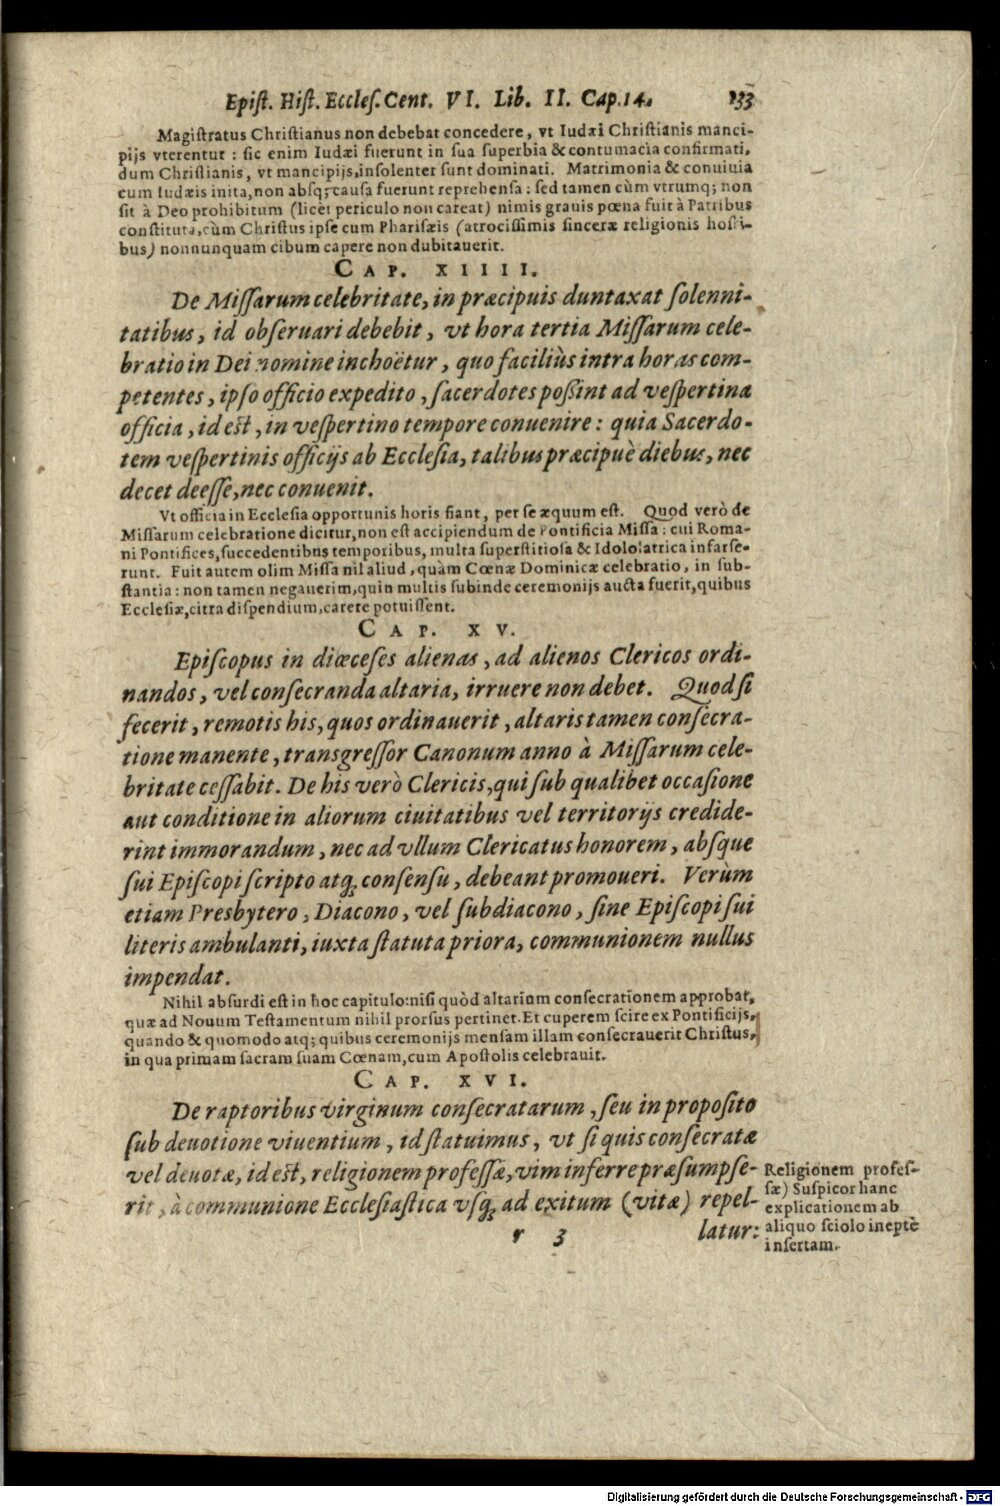 Epiſt. Hiſt. Eccleſ. Cent. VI. Lib. II. Cap. 14. 133
Magiſtratus Chriſtianus non debebat concedere, vt Iudæi Chriſtianis manci-
pijs vterentur : ſic enim Iudæi fuerunt in ſua ſuperbia & contumacia confirmati,
dum Chriſtianis, vt mancipijs, inſolenter ſunt dominati. Matrimonia & conuiuia
cum Iudæis inita, non abſq; cauſa fuerunt reprehenſa : ſed tamen cùm vtrumq; non
ſit à Deo prohibitum (licet periculo non careat) nimis grauis pœna fuit à Patribus
conſtituta, cùm Chriſtus ipſe cum Phariſæis (atrociſſimis ſinceræ religionis hoſti-
bus) nonnunquam cibum capere non dubitauerit.
CAP. XIIII.
De Miſſarum celebritate, in præcipuis duntaxat ſolenni-
tatibus, id obſeruari debebit, vt hora tertia Miſſarum cele-
bratio in Dei nomine inchoëtur, quo faciliùs intra horas com-
petentes, ipſo officio expedito, ſacerdotes poßint ad veſpertina
officia, id eſt, in veſpertino tempore conuenire : quia Sacerdo-
tem veſpertinis officijs ab Eccleſia, talibus præcipuè diebus, nec
decet deeſſe, nec conuenit.
Vt officia in Eccleſia opportunis horis fiant, per ſe æquum eſt. Quod verò de
Miſſarum celebratione dicitur, non eſt accipiendum de Pontificia Miſſa : cui Roma-
ni Pontifices, ſuccedentibus temporibus, multa ſuperſtitioſa & Idololatrica infarſe-
runt. Fuit autem olim Miſſa nil aliud, quàm Cœnæ Dominicæ celebratio, in ſub-
ſtantia : non tamen negauerim, quin multis ſubinde ceremonijs aucta fuerit, quibus
Eccleſiæ, citra diſpendium, carere potuiſſent.
CAP. XV.
Epiſcopus in diœceſes alienas, ad alienos Clericos ordi-
nandos, vel conſecranda altaria, irruere non debet. Quod ſi
fecerit, remotis his, quos ordinauerit, altaris tamen conſecra-
tione manente, transgreſſor Canonum anno à Miſſarum cele-
britate ceſſabit. De his verò Clericis, qui ſub qualibet occaſione
aut conditione in aliorum ciuitatibus vel territorijs credide-
rint immorandum, nec ad vllum Clericatus honorem, abſque
ſui Epiſcopi ſcripto atq; conſenſu, debeant promoueri. Verùm
etiam Presbytero, Diacono, vel ſubdiacono, ſine Epiſcopi ſui
literis ambulanti, iuxta ſtatuta priora, communionem nullus
impendat.
Nihil abſurdi eſt in hoc capitulo: niſi quòd altarium conſecrationem approbat,
quæ ad Nouum Teſtamentum nihil prorſus pertinet. Et cuperem ſcire ex Pontificijs,
quando & quomodo atq; quibus ceremonijs menſam illam conſecrauerit Chriſtus,
in qua primam ſacram ſuam Cœnam, cum Apoſtolis celebrauit.
CAP. XVI.
De raptoribus virginum conſecratarum, ſeu in propoſito
ſub deuotione viuentium, id ſtatuimus, vt ſi quis conſecratæ
vel deuotæ, id eſt, religionem profeſſæ, vim inferre præſumpſe-
rit, à communione Eccleſiaſtica vſq; ad exitum (vitæ) repel-
latur:
r 3
Religionem profeſ-
ſæ) Suſpicor hanc
explicationem ab
aliquo ſciolo ineptè
inſertam.
Digitalisierung gefördert durch die Deutsche Forschungsgemeinschaft - DFG